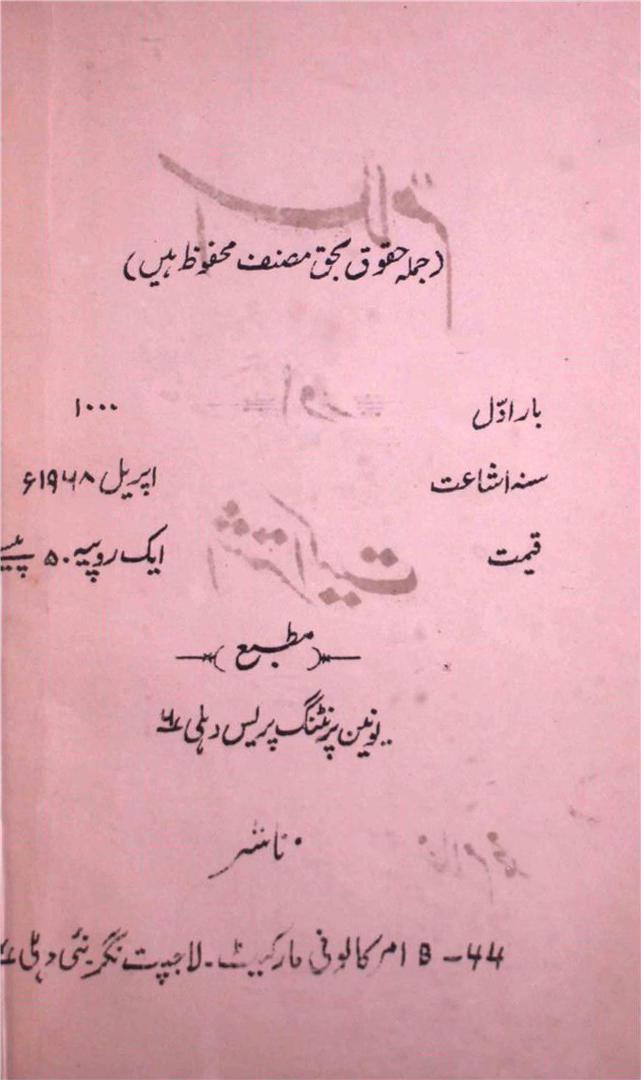 (جملہ حقوق بحق مصنف محفوظ ہیں)
بار اوّل ۱۰۰۰
سنہ اشاعت اپریل ۱۹۶۸ء
قیمت ایک روپیہ ۵۰ پیسے
مطبع
یونین پرنٹنگ پریس دہلی ۶
ناشر
۴۴ - B امر کالونی مارکیٹ - لاجپت نگر نئی دہلی
اسلام
اور
اشتراکیت